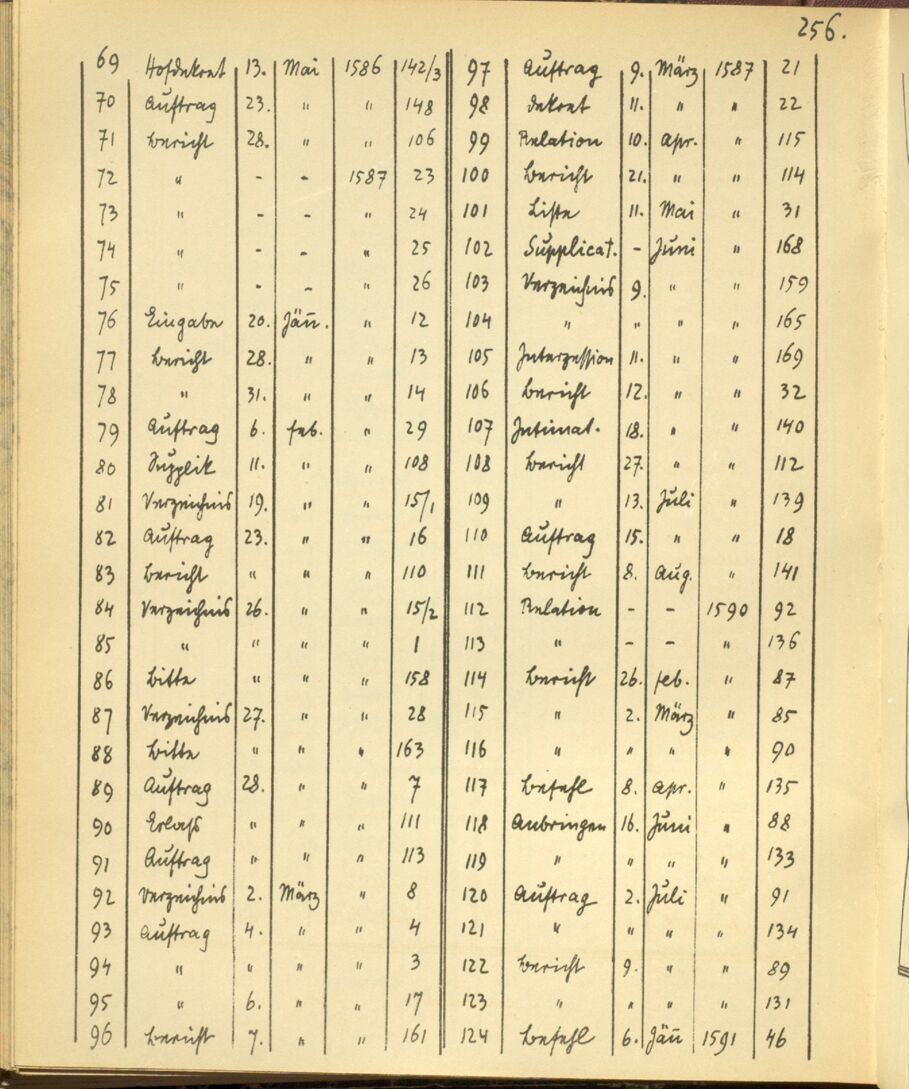 256.
69 Hofdekret 13. Mai 1586 142/3
70 Auftrag 23. " " 148
71 Bericht 28. " " 106
72 " - - 1587 23
73 " - - " 24
74 " - - " 25
75 " - - " 26
76 Eingabe 20. Jän. " 12
77 Bericht 28. " " 13
78 " 31. " " 14
79 Auftrag 6. Feb. " 29
80 Supplik 11. " " 108
81 Verzeichnis 19. " " 15/1
82 Auftrag 23. " " 16
83 Bericht " " " 110
84 Verzeichnis 26. " " 15/2
85 " " " " 1
86 Bitte " " " 158
87 Verzeichnis 27. " " 28
88 Bitte " " " 163
89 Auftrag 28. " " 7
90 Erlaß " " " 111
91 Auftrag " " " 113
92 Verzeichnis 2. März " 8
93 Auftrag 4. " " 4
94 " " " " 3
95 " 6. " " 17
96 Bericht 7. " " 161
97 Auftrag 9. März 1587 21
98 Dekret 11. " " 22
99 Relation 10. Apr. " 115
100 Bericht 21. " " 114
101 Liste 11. Mai " 31
102 Supplicat. - Juni " 168
103 Verzeichnis 9. " " 159
104 " " " " 165
105 Interzession 11. " " 169
106 Bericht 12. " " 32
107 Intimat. 18. " " 140
108 Bericht 27. " " 112
109 " 13. Juli " 139
110 Auftrag 15. " " 18
111 Bericht 8. Aug. " 141
112 Relation - - 1590 92
113 " - - " 136
114 Bericht 26. Feb. " 87
115 " 2. März " 85
116 " " " " 90
117 Befehl 8. Apr. " 135
118 Anbringen 16. Juni " 88
119 " " " " 133
120 Auftrag 2. Juli " 91
121 " " " " 134
122 Bericht 9. " " 89
123 " " " " 131
124 Befehl 6. Jän 1591 46